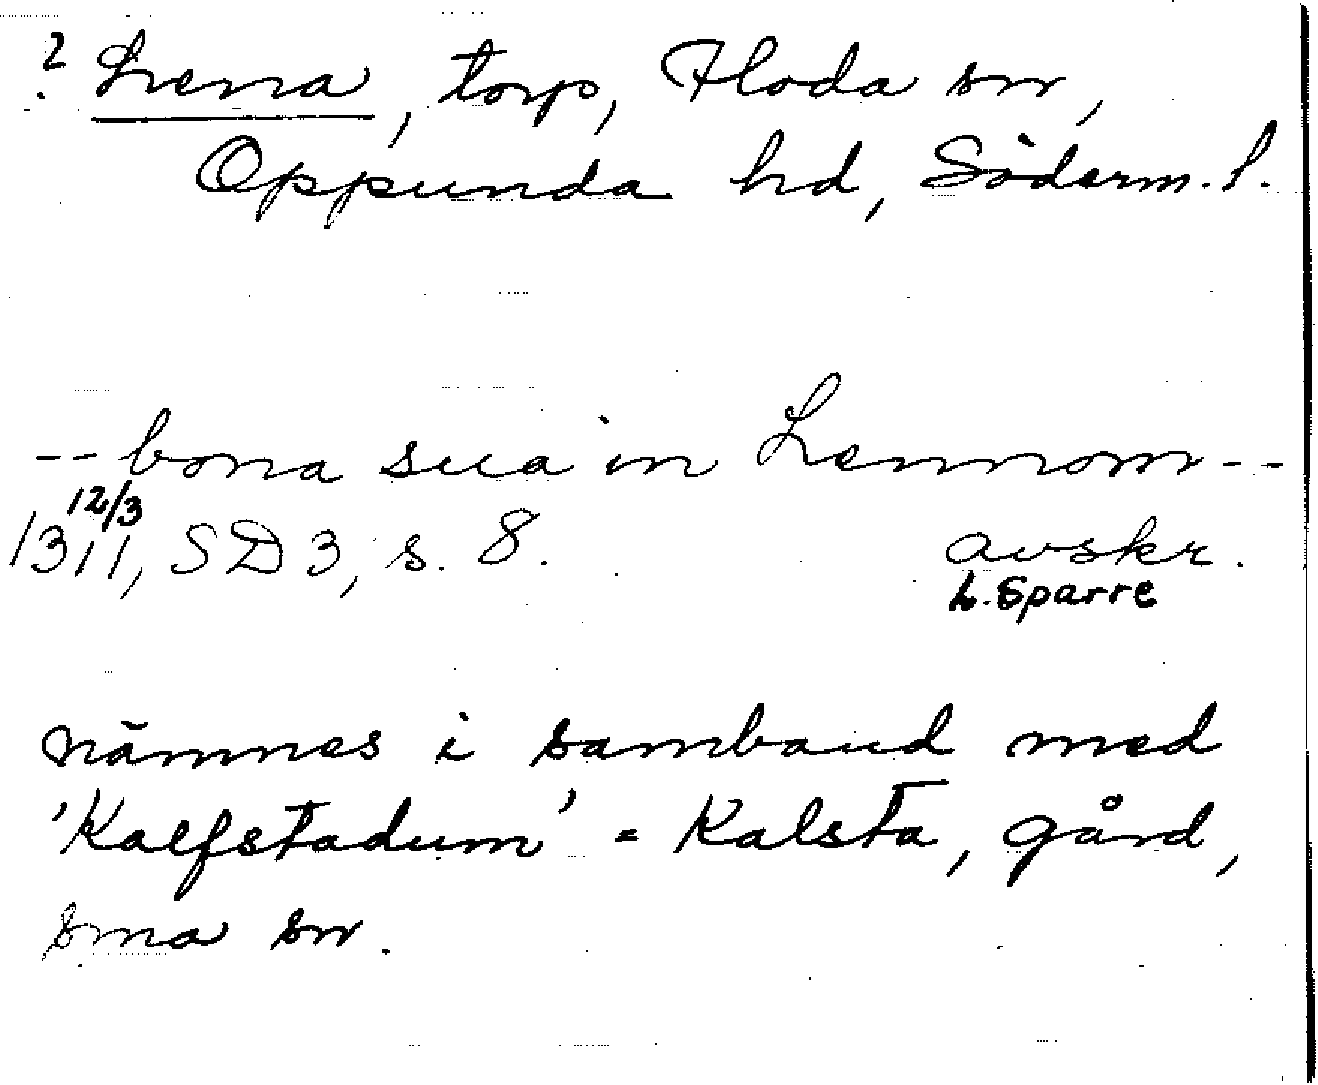 ? Lrena, torp, Floda sn,
Oppunda hd, Söderm. l.
-- bona sua in Lennom --
12/3
1311, SD 3, s. 8. avskr.
L. Sparre
nämnes i samband med
'Kalfstadum' = Kalsta, gård,
sma sn.